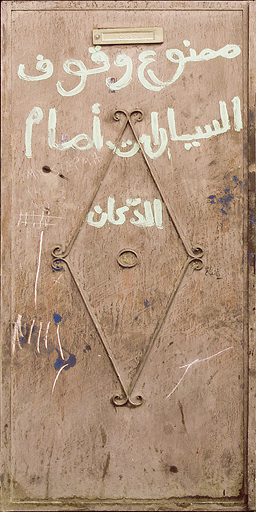 ممنوع وقوف
السيارات أمام
الدكان